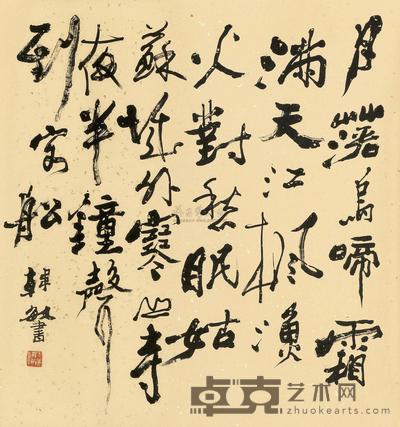 月落烏啼霜
滿天江楓漁
火對愁眠姑
蘇城外寒山寺
夜半鐘聲
到客船
韓敏書
卓克艺术网
zhuokearts.com